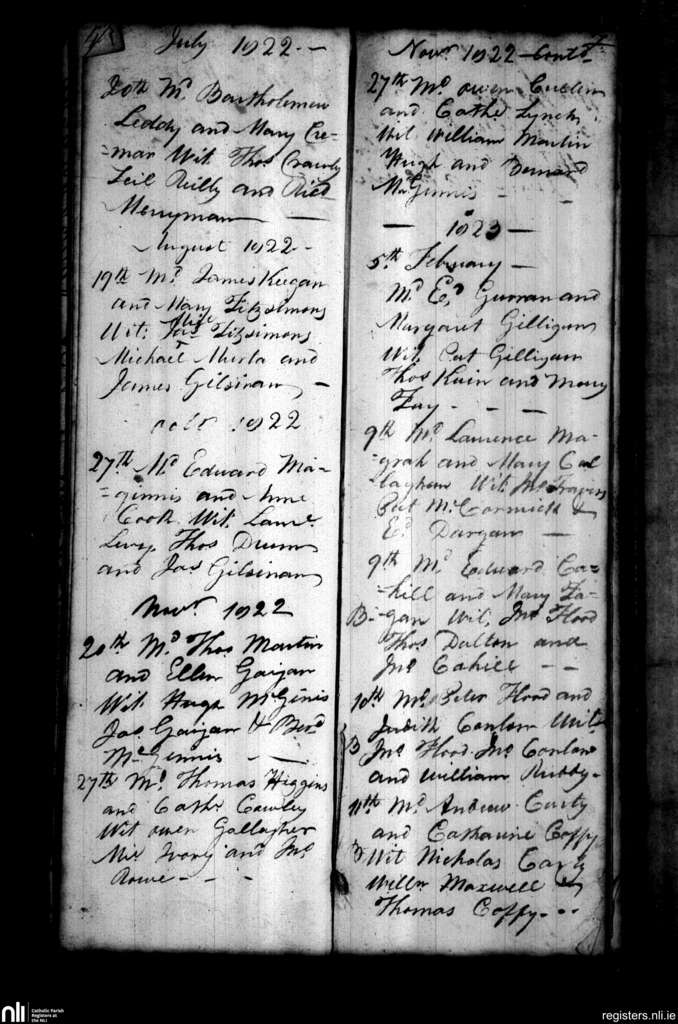 July 1822 -
20th Md. Bartholomew
Leddy and Mary Cre-
=mar Wit. Thos Crawly
Reilly and Richd
Merryman —
August 1822 -
19th Md. James Keegan
and Mary Fitzsimons
Wit: Fitzsimons
Michael Murta and
James Gilsinan —
1822
27th Md Edward Ma-
=ginnis and Anne
Cook Wit. Laure.
Thos Drum
and Jas Gilsinan
Novr. 1822
20th Md Thos Martin
and Ellen Gaijan
Wit Hugh McGinis
Jas Gaijan & Bernd
McGennis — —
27th Md. Thomas Higgins
and Cathe Cawley
Wit owen Gallagher
Ivory and Jno
Rowe - - -
Novr 1822 Contd
27th Md owen
and Cathe Lynch
Wit William Martin
Hugh and Bernard
McGinnis - -
— 1823 —
5th February —
Md Ed Curran and
Margaret Gilligan
Wit. Pat Gilligan
Thos Kain and Mary
Fay - - —
9th Md Laurence Ma-
=grah and Mary Cal
laghan Wit. Jno Travers
Pat McCormick &
Ed Dargan —
9th Md Edward Ca-
=hill and Mary Fa-
B=gan Wit, Jno Flood
Thos Dalton and
Jno Cahill - -
10th Md Peter Flood and
Judith Conlan Wit
B Jno Flood Jno Conlan
and William Ruddy -
11th Md Andrew Carty
and Catharine Coffy
B Wit Nicholas Carty
Willm Maxwell &
Thomas Coffy - - -
nli
Catholic Parish
Registers at
the NLI
registers.nli.ie